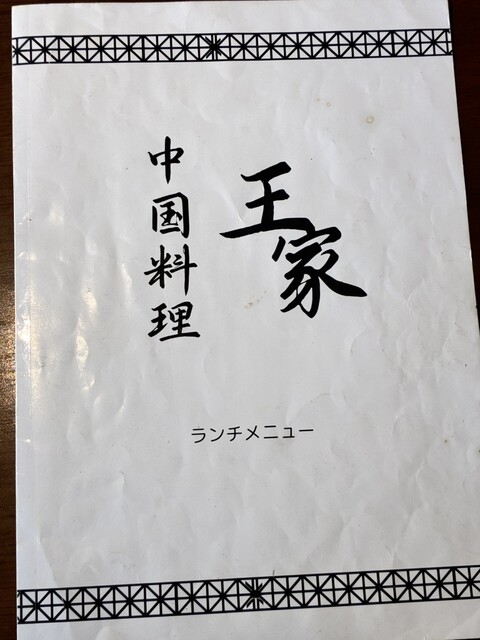 王家
中国料理
ランチメニュー